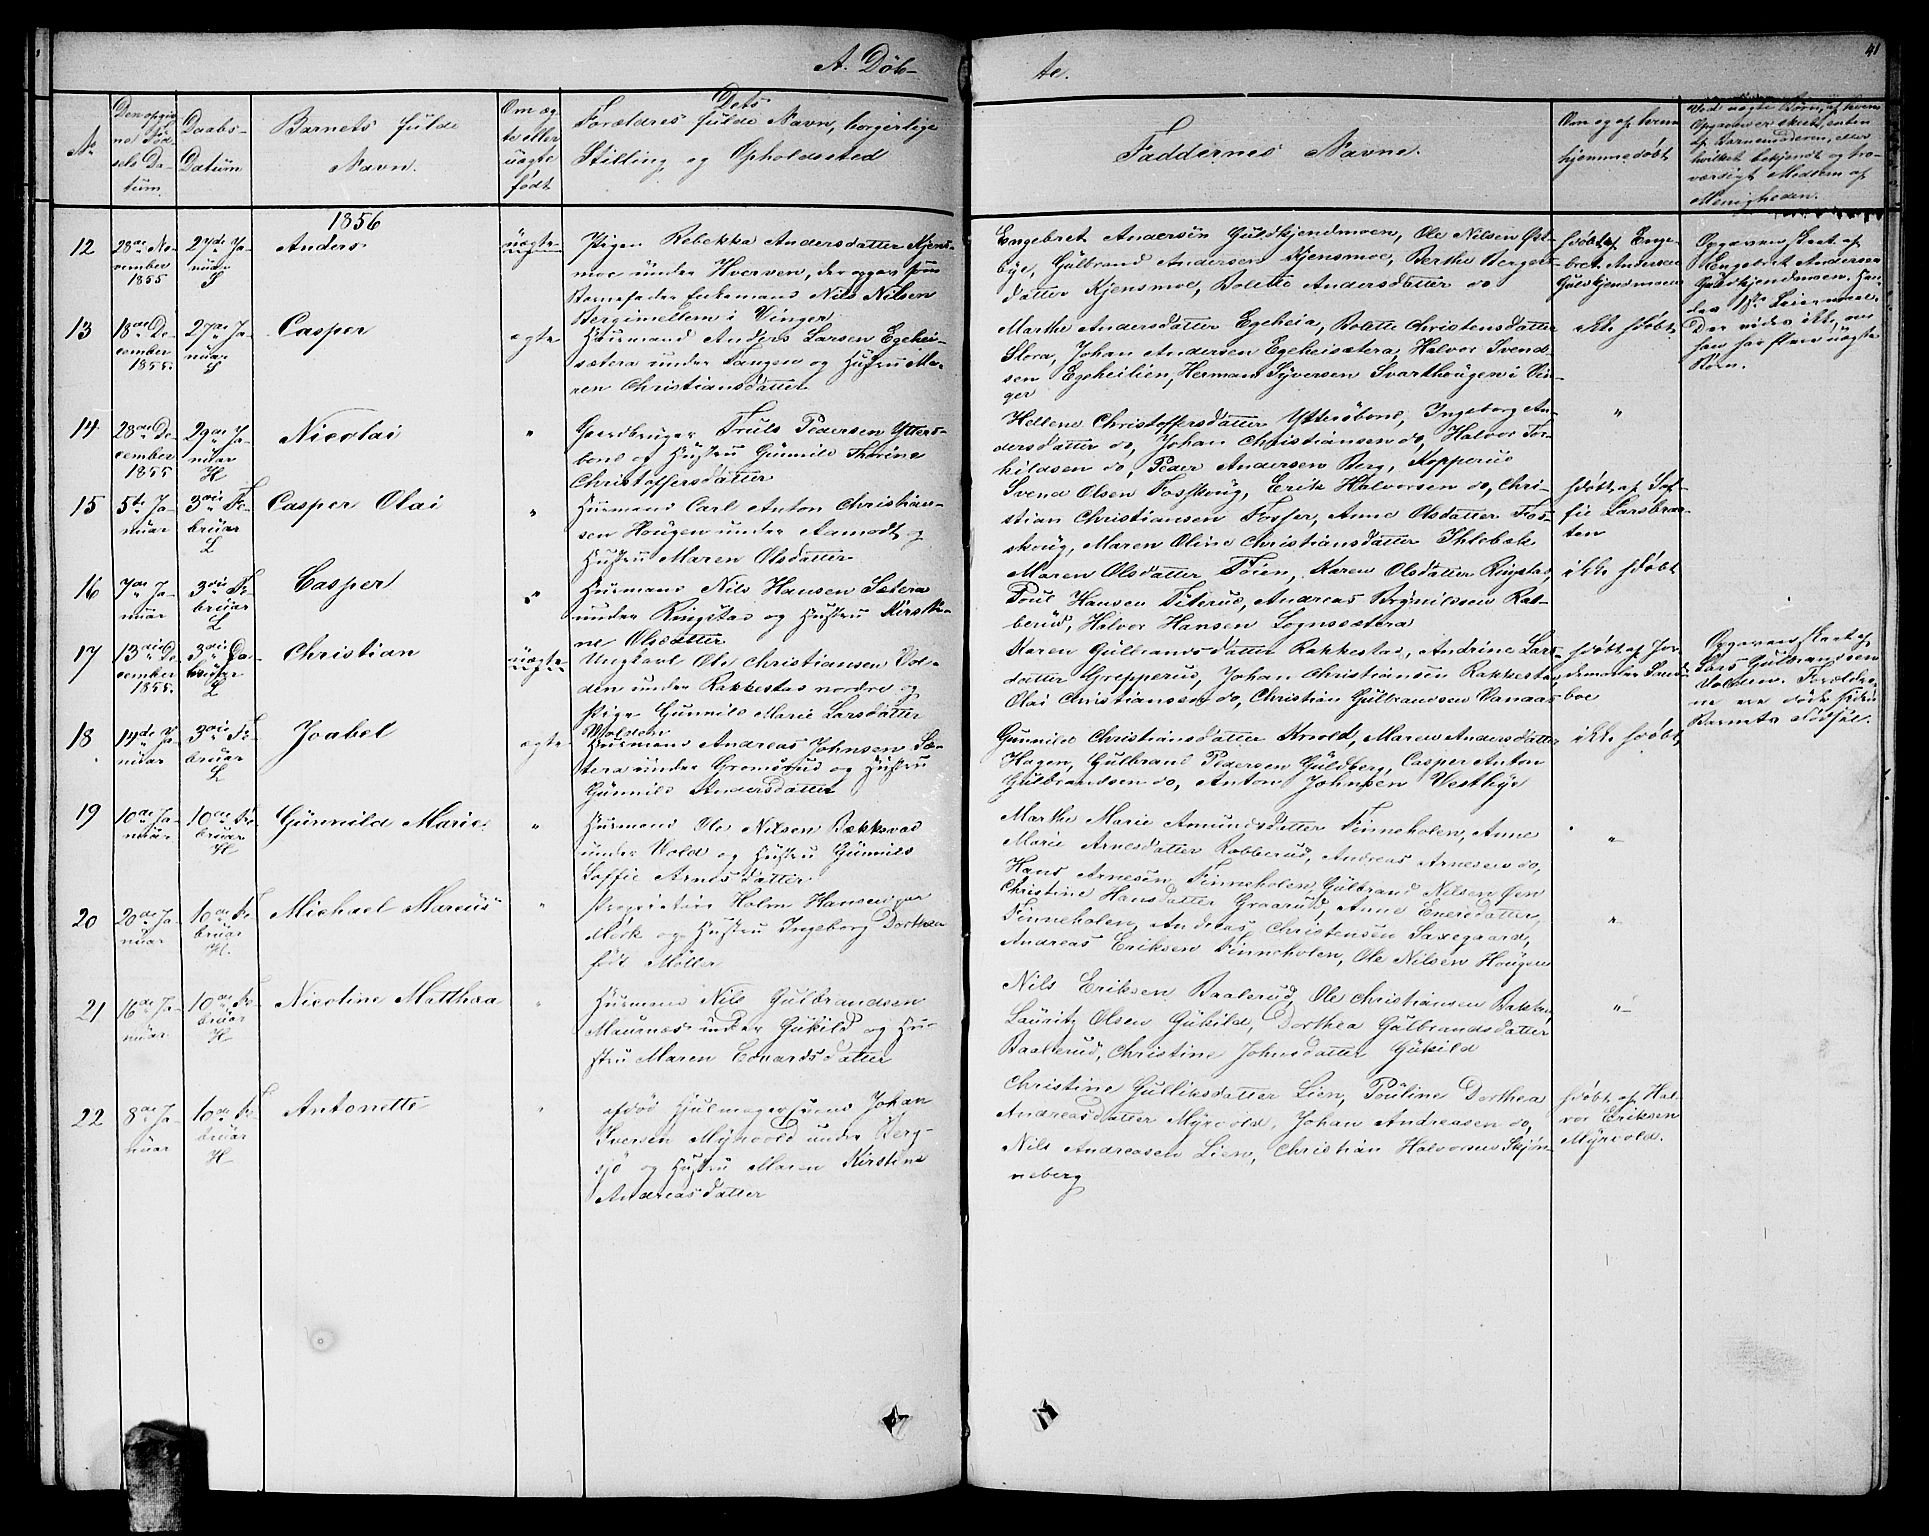 A. Døb-
te.
41
No
Den opgiv-
ne Fød-
sels Da-
tum.
Daabs-
Datum
Barnets fulde
Navn.
Om æg-
te eller
uægte
født
Dets
Forældres fulde Navn, borgerlige
Stilling og Opholdssted
Faddernes Navne.
Om og af hvem
hjemmedøbt
Ved uægte Børn, af hvem
Opgaven er skeet, enten
af
hvilket bekjendt og tro-
værdigt Medlem af
Menigheden.
1856
12
28de No-
vember
1855
27de Ja-
nuar
L
Anders
uægte
Pigen Rebekka Andersdatter Kjens-
moe under Hverven, der opgav som
Barnefader Enkemand Nils Nilsen
Bergimellem i Vinger
Engebret Andersen Guldkjendmoen, Ole Nilsen Øst-
bye, Gulbrand Andersen Kjensmoe, Berthe Berger-
datter Kjensmoe, Bolette Andersdatter do
hjdøbt af Enge-
bret Andersen
Guldkjendmoen
Opgaven skeet af
Engebret Andersen
Guldkjendmoen. Han-
des 1ste Leiermaal.
Der vides ikke, om
hun har flere uægte
Børn.
13
18de De-
cember
1855.
27de Ja-
nuar
L
Casper
ægte
Huusmand Anders Larsen Egehei-
sætera under Langen og Hustru Ma-
ren Christiansdatter
Marthe Andersdatter Egeheia, Bolette Christensdatter
Slora, Johan Andersen Egeheisætera, Halvor Svend-
sen Egeheilien, Herman Syversen Svarthougen i Vin-
ger
ikke hjdøbt
14
28de De-
cember
1855
29de Ja-
nuar
H
Nicolai
"
Gaardbruger Truls Pedersen Ytters-
bone og Hustru Gunnild Thorine
Christoffersdatter
Hellene Christoffersdatter Ytterøbone, Ingeborg An-
dersdatter do, Johan Christiansen do, Halvor Tor-
kildsen do, Peder Andersen Berg, Kopperud
"
15
5te Ja-
nuar
3die Fe-
bruar
L
Casper Olai
"
Huusmand Carl Anton Christian-
sen Hougen under Aamodt og
Hustru Maren Olsdatter
Svend Olsen Fosskoug, Erik Halvorsen do, Chri-
stian Christiansen Fosser, Anne Olsdatter Fos-
skoug, Maren Oline Christiansdatter Ihlebæk
hjdøbt af Sof-
fie Larsbraa-
ten
16
7de Ja-
nuar
3die Fe-
bruar
L
Casper
"
Huusmand Nils Hansen Sætera
under Ringstad og Hustru Kirsti-
ne Olsdatter
Maren Olsdatter Føien, Karen Olsdatter Ringstad,
Poul Hansen Titerud, Andreas Brynildsen Rak-
berud, Halvor Hansen Sognssætera
ikke hjdøbt
17
13die De-
cember
1855.
3die Fe-
bruar
L
Christian
uægte
Ungkarl Ole Christiansen Vol-
den under Rakkestad nordre og
Pige Gunnild Marie Larsdatter
Volden
Karen Gulbrandsdatter Rakkestad, Andrine Lars-
datter Grepperud, Johan Christiansen Rakkestad,
Olai Christiansen do, Christian Gulbrandsen Vanaas
hjdøbt af Jor-
demoder Sand-
boe
Opgaven skeet af
Lars Gulbrandsen
Volden. Forældre-
ne ere døde siden
Barnets Fødsel.
18
14de Ja-
nuar
3die Fe-
bruar
L
Joabel
ægte
Huusmand Andreas Johnsen Sæ-
tera under Gromsrud og Hustru
Gunnild Andersdatter
Gunnild Christiansdatter Krold, Maren Andersdatter
Hagen, Gulbrand Pedersen Guldberg, Casper Anton
Gulbrandsen do, Anton Johnsen Westbye
ikke hjdøbt,
19
10de Ja-
nuar
10de Fe-
bruar
H
Gunnild Marie
"
Huusmand Ole Nilsen Bækkevad
under Vold og Hustru Gunnild
Soffie Arnesdatter
Marthe Marie Amundsdatter Finneholen, Anne
Marie Arnesdatter Robberud, Andreas Arnesen do,
Hans Arnesen, Finneholen, Gulbrand Nilsen Øen
"
20
20de Ja-
nuar
10de Fe-
bruar
H.
Michael Marcus
"
Proprietair Holm Hansen paa
Mørk og Hustru Ingeborg Dorthea
født Møller
Christine Hansdatter Graarud, Anne Enersdatter,
Finneholen, Andreas Christensen Saxegaard,
Andreas Eriksen Finneholen, Ole Nilsen Hougen
"
21
16de Ja-
nuar
10de Fe-
bruar
H
Nicoline Matthea
"
Huusmand Nils Gulbrandsen
Maurnæs under Gukild og Hu-
stru Maren Edvardsdatter
Nils Eriksen Baalerud, Ole Christiansen Bakken,
Lauritz Olsen Gukild, Dorthea Gulbrandsdatter
Baalerud, Christine Johnsdatter Gukild
"
22
8de Ja-
nuar
10de Fe-
bruar
H
Antonette
"
afdød Hjulmagersvend Johan
Iversen Myrvold under Berg-
sjø og Hustru Maren Kirstine
Andreasdatter
Christine Gulliksdatter Lien, Pouline Dorthea
Andreasdatter Myrvold, Johan Andreasen do,
Nils Andreasen Lien, Christian Halvorsen Skjøn-
neberg
hjdøbt af Hal-
vor Eriksen
Myrvold.